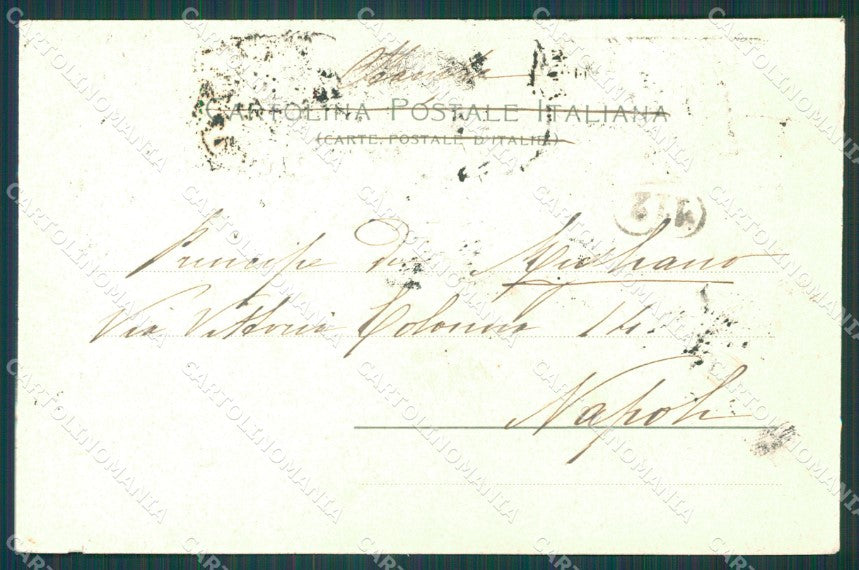 Stampata
CARTOLINA POSTALE ITALIANA
(CARTE POSTALE D'ITALIE)
Principe di Migliano
Via Vittoria Colonna 14.
Napoli
CARTOLINOMANIA